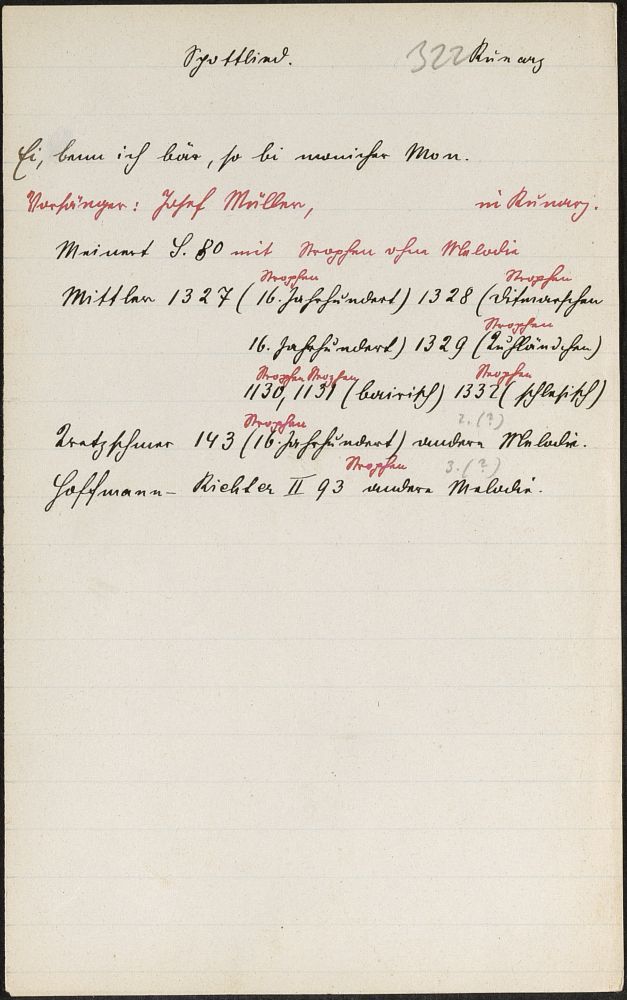 Spottlied. 322 Runarz
Ei, wenn ich bär, so bi manicher Mon.
Vorsänger: Josef Müller, in Runarz.
Meinert S. 80 mit Strophen ohne Melodie
Strophen Strophen
Mittler 1327 (16. Jahrhundert) 1328 (Ditmarschen
Strophen
16. Jahrhundert) 1329 (Kuhländchen)
Strophen Strophen Strophen
1130, 1131 (bairisch) 1332 (schlesisch)
Strophen 2. (?)
Kretzschmer 143 (16. Jahrhundert) andere Melodie.
Strophen 3. (?)
Hoffmann-Richter II 93 andere Melodie.